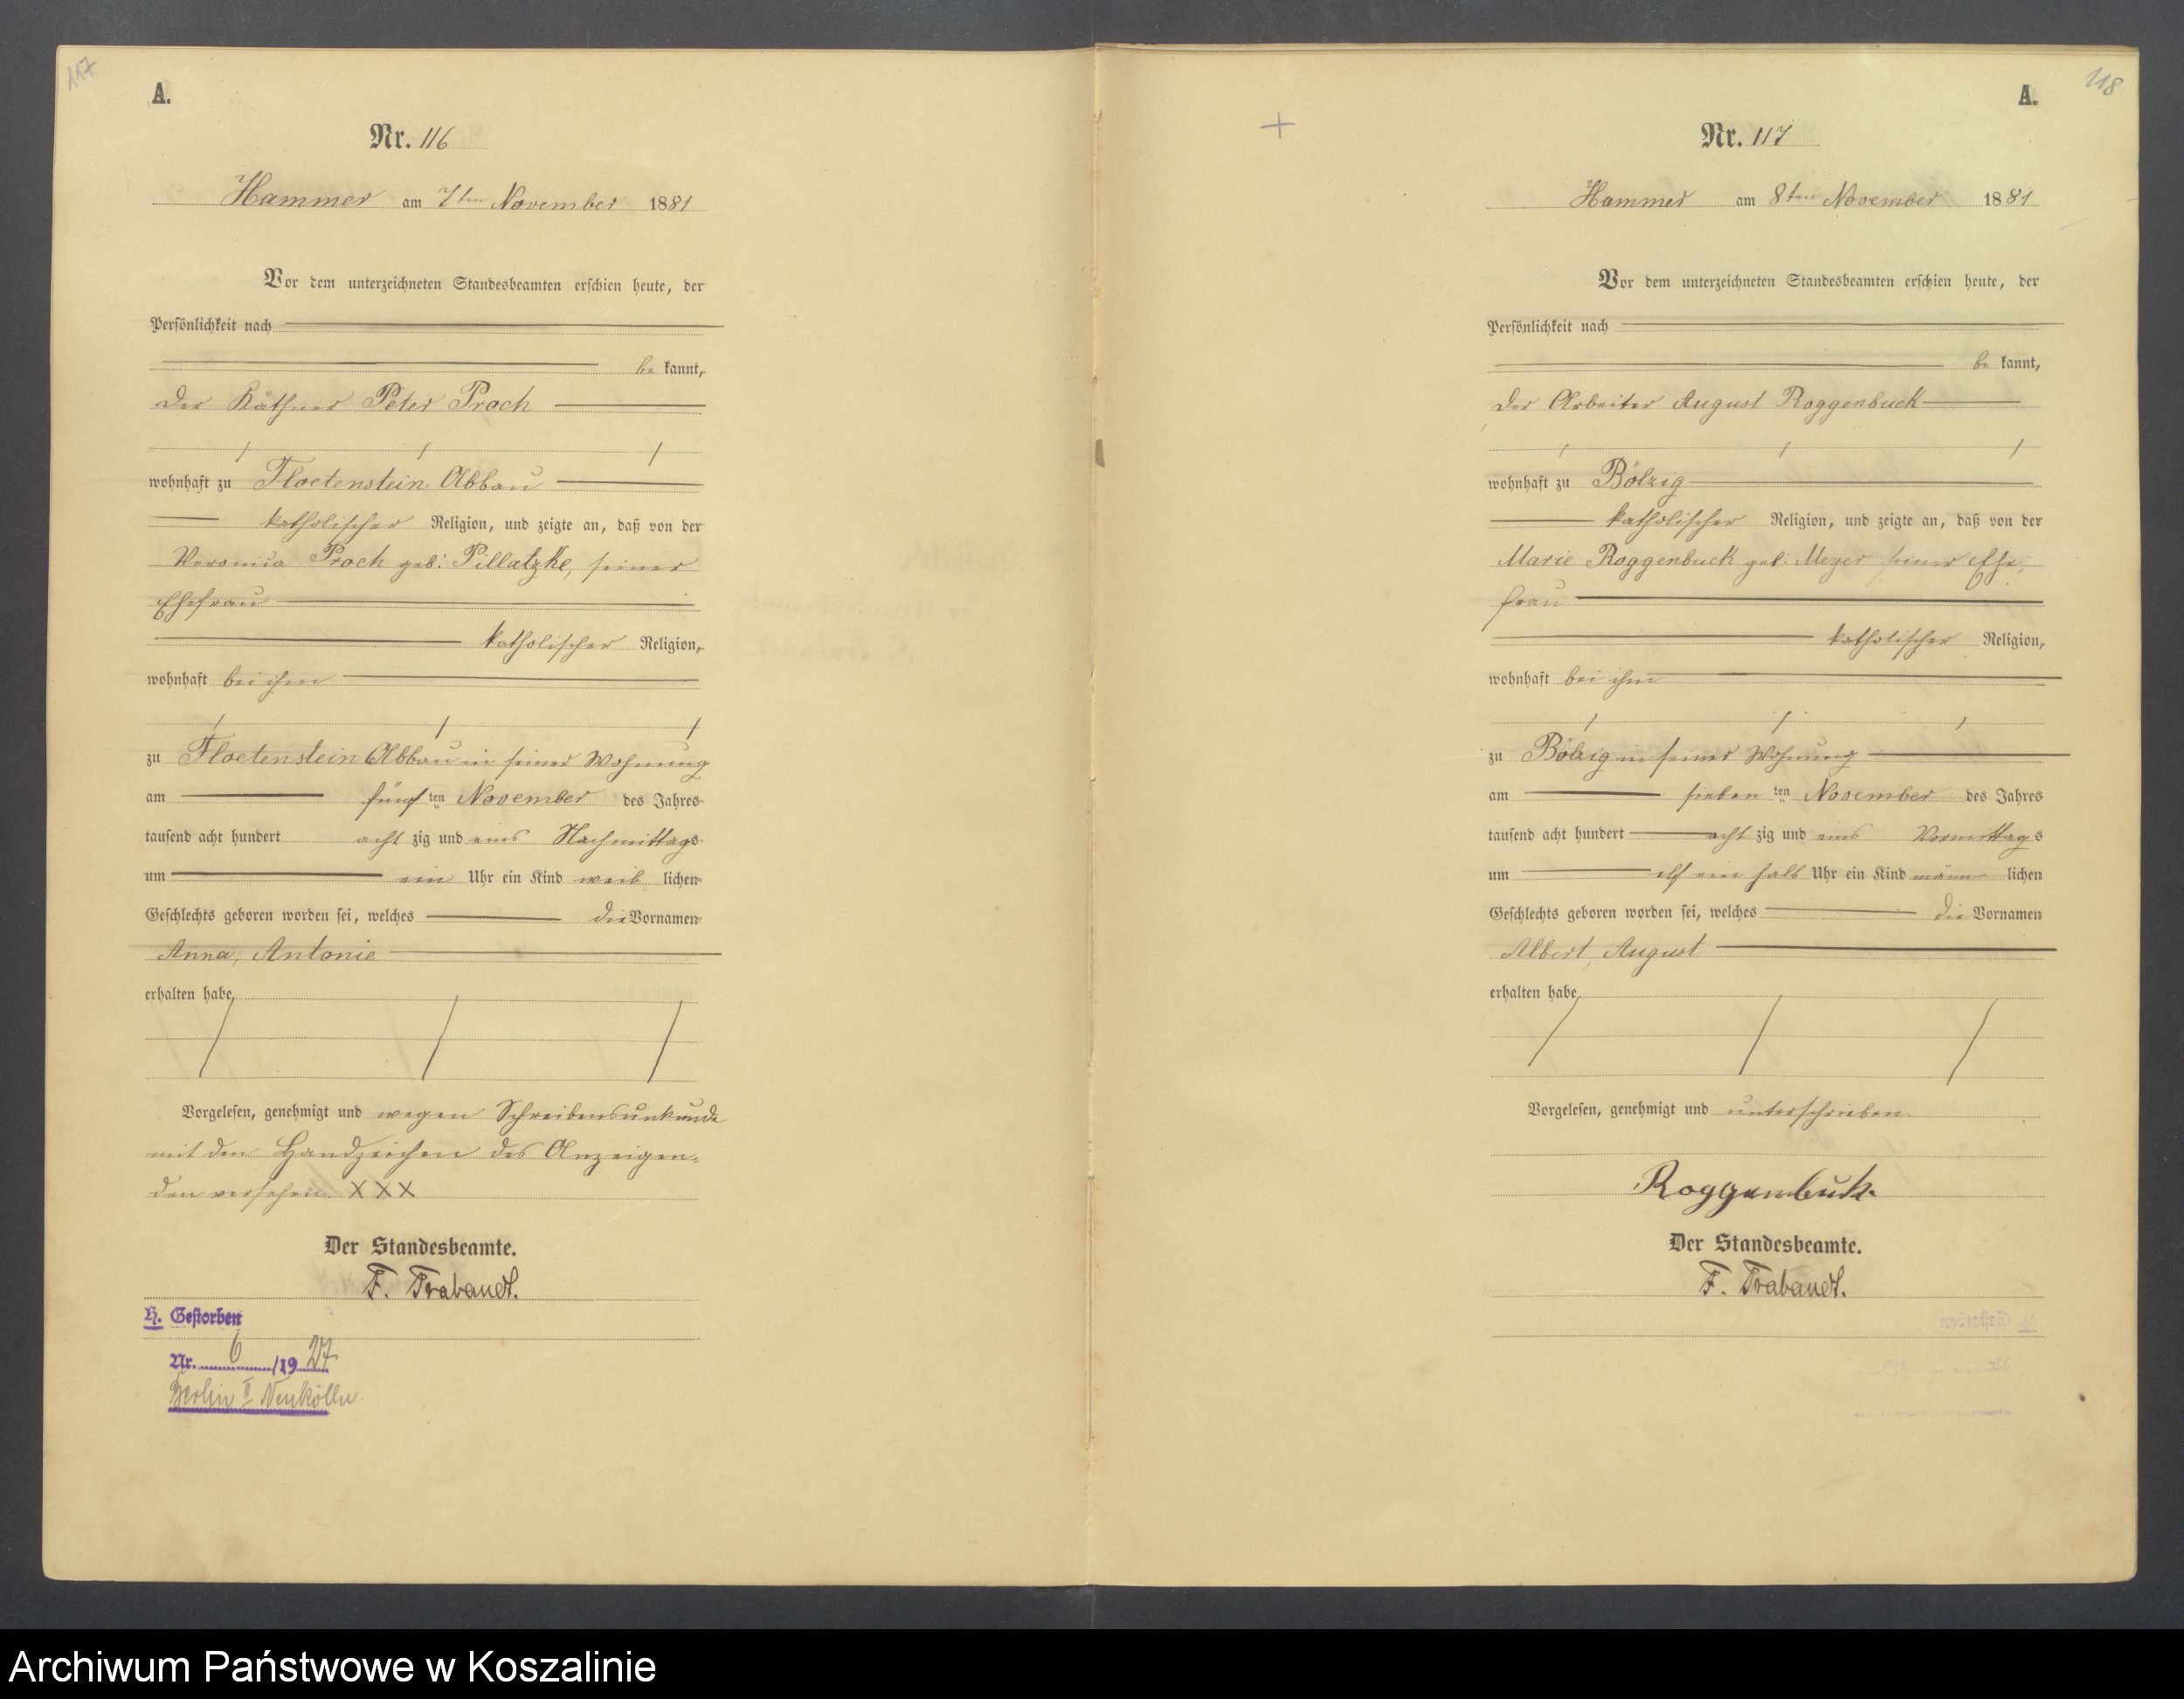 117
A.
Nr. 116
Hammer am 7ten November 1881
Vor dem unterzeichneten Standesbeamten erschien heute, der
Persönlichkeit nach
be kannt,
der Käthner Peter Proch
wohnhaft zu Floetenstein Abbau
katholischer Religion, und zeigte an, daß von der
Veronica Proch geb: Pillatzke, seiner
Ehefrau
katholischer Religion,
wohnhaft bei ihm
zu Floetenstein Abbau in seiner Wohnung
am fünf ten November des Jahres
tausend acht hundert acht zig und eins Nachmittags
um ein Uhr ein Kind weib lichen
Geschlechts geboren worden sei, welches die Vornamen
Anna, Antonie
erhalten habe
Vorgelesen, genehmigt und wegen Schreibensunkunde
mit den Handzeichen des Anzeigen-
den versehen. XXX
Der Standesbeamte.
F. Trabandt.
H. Gestorben
Nr. 6 /19 27
Berlin II Neukölln
118
A.
Nr. 117
Hammer am 8ten November 1881
Vor dem unterzeichneten Standesbeamten erschien heute, der
Persönlichkeit nach
be kannt,
der Arbeiter August Roggenbuck
wohnhaft zu Bölzig
katholischer Religion, und zeigte an, daß von der
Marie Roggenbuck geb: Meyer seiner Ehe-
frau
katholischer Religion,
wohnhaft bei ihm
zu Bölzig in seiner Wohnung
am sieben ten November des Jahres
tausend acht hundert acht zig und eins Vormittags
um elf ein halb Uhr ein Kind männ lichen
Geschlechts geboren worden sei, welches die Vornamen
Albert, August
erhalten habe
Vorgelesen, genehmigt und unterschrieben.
Roggenbuk.
Der Standesbeamte.
F. Trabandt.
Archiwum Państwowe w Koszalinie